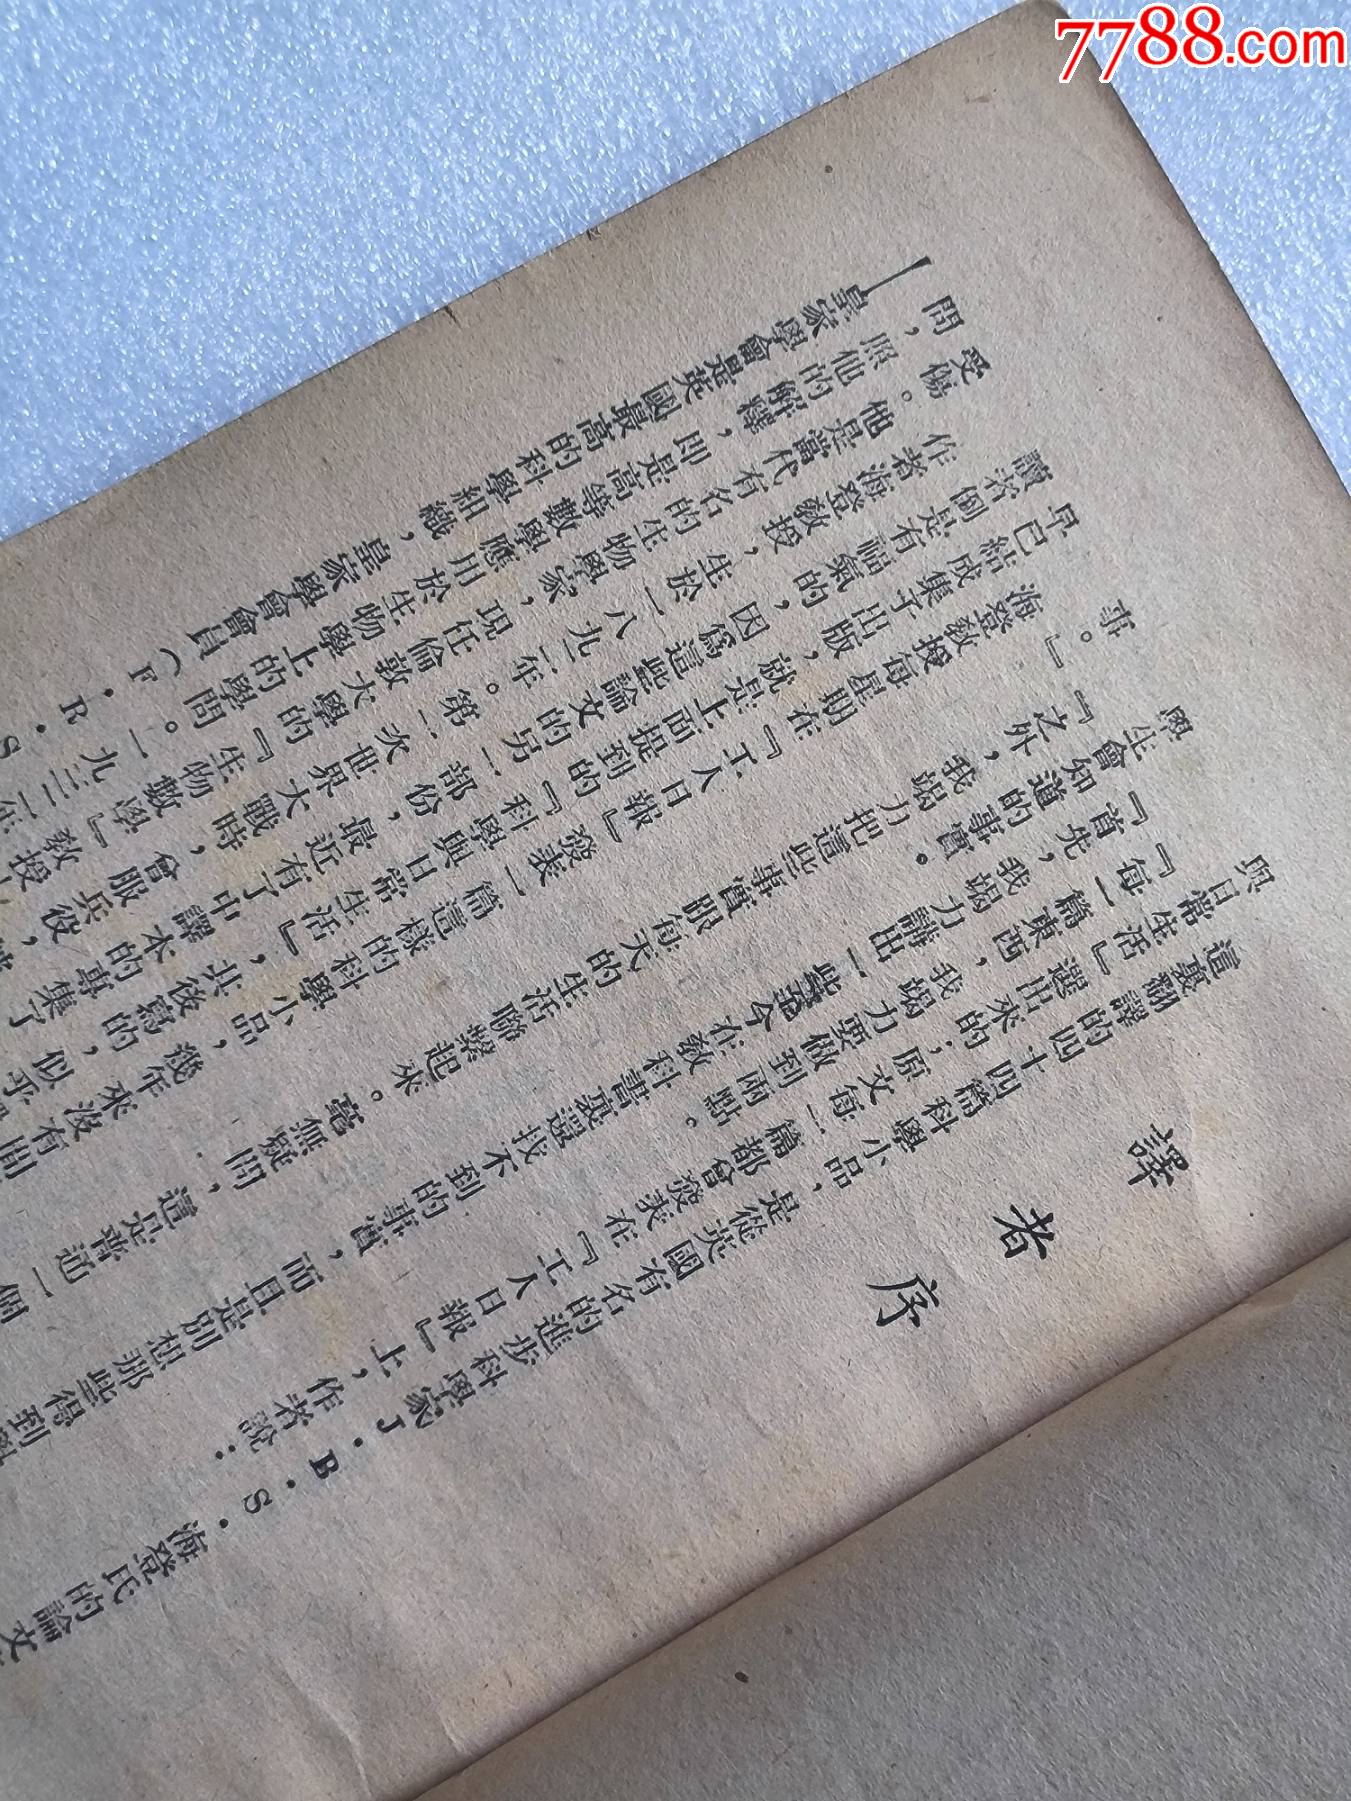 譯者序
這裏翻譯的四十四篇科學小品,是從英國有名的進步科學家J.B.S.海登氏的論文
與日常生活』選出來的;原文每一篇都曾發表在『工人日報』上,作者說:
『每一篇東西,我竭力要做到兩點。
『首先,我竭力講出一些至今在教科書裏還找不到的事實,而且是別想那些得到
學生會知道的事實。
『之外,我竭力把這些事實跟每天的生活聯繫起來。毫無疑問,這是普通一個
事。』
海登教授每星期在『工人日報』發表一篇這樣的科學小品,幾年來沒有間
早已結成集子出版,就是上面提到的『科學與日常生活』,其後寫的,似乎
讀者倒是有福氣的,因爲這些論文的另一部份,最近有了中譯本的專集了
作者海登教授,生於一八九二年。第一次世界大戰時,曾服兵役,
受傷。他是當代有名的生物學家,現任倫敦大學的『生物數學』教授
問,照他的解釋,即是高等數學應用於生物學上的學問。一九三二年
皇家學會是英國最高的科學組織,皇家學會會員(F.R.S
7788.com